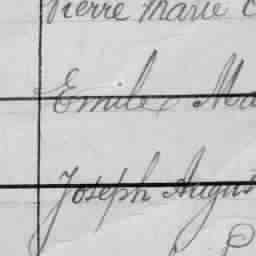 Pierre Marie
Emile Ma
Joseph August